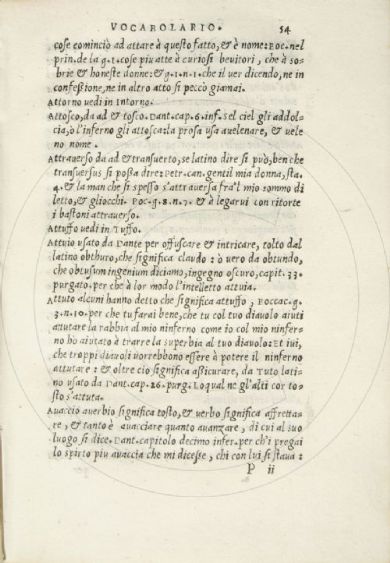 VOCABOLARIO. 54
cose cominciò ad attare à questo fatto, & è nome: Boc. nel
prin. de la g. 1. cose piu atte à curiosi bevitori, che à so-
brie & honeste donne: & g. 1. n. 1. che il ver dicendo, ne in
confeßione, ne in altro atto si peccò giamai.
Attorno uedi in Intorno.
Attosco, da ad & tosco. Dant. cap. 6. inf. se'l ciel gli addol-
cia, ò l'inferno gli attosca: la prosa usa auelenare, & uele
no nome.
Attrauerso da ad & transuerto, se latino dire si può, ben che
transuersus si poßa dire: Petr. can. gentil mia donna, sta.
4. & la man che si spesso s'attrauersa fra'l mio sommo di
letto, & gliocchi. Boc. g. 8. n. 7. & à legarui con ritorte
i bastoni attrauerso.
Attuffo uedi in Tuffo.
Attuio usato da Dante per offuscare & intricare, tolto dal
latino obthuro, che significa claudo: ò uero da obtundo,
che obtusum ingenium diciamo, ingegno oscuro, capit. 33.
purgato. per che à lor modo l'intelletto attuia.
Attuto alcuni hanno detto che significa attuffo; Boccac. g.
3. n. 10. per che tu farai bene, che tu col tuo diauolo aiuti
attutare la rabbia al mio ninferno come io col mio ninfer-
no ho aiutato à trarre la superbia al tuo diauolo: Et iui,
che troppi diauoli uorrebbono essere à potere il ninferno
attutare: & oltre cio significa aßicurare, da Tuto lati-
no usato da Dant. cap. 26. purg. Lo qual ne gl'alti cor to-
sto s'attuta.
Auaccio auerbio significa tosto, & uerbo significa affretta-
re, & tanto è auacciare quanto auanzare, di cui al suo
luogo si dice. Dant. capitolo decimo infer. per ch'i pregai
lo spirto piu auaccia che mi dicesse, chi con lui si staua:
P ii